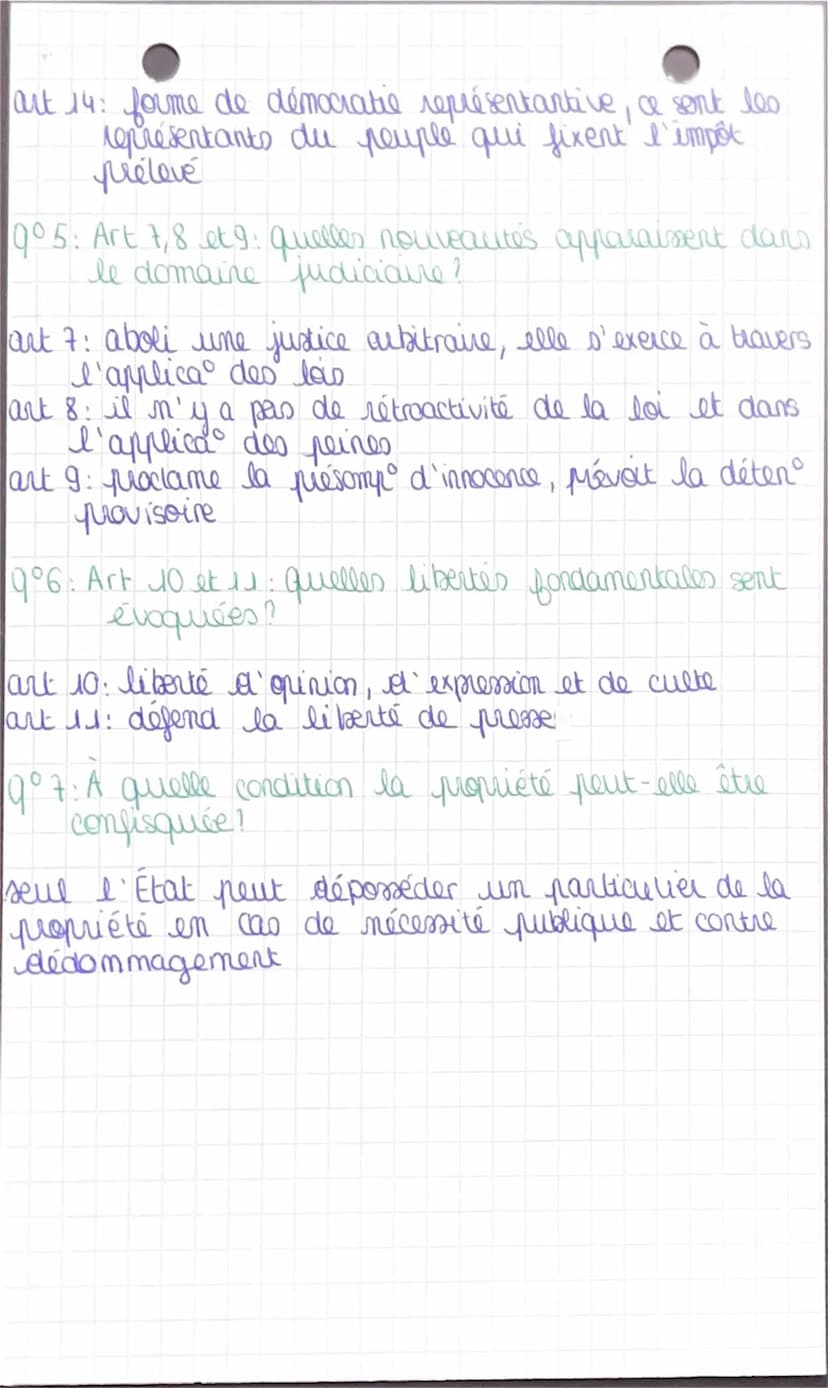 art 14: forme de démocratie représentantive, ce sent les
représentants du peuple qui fixent l'impôt
prélevé
q°5: Art 7,8 et 9: quelles nouveautés apparaissent dans
le domaine judiciaire?
art 7: aboli une justice arbitraire, elle s'exerce à travers
l'applica° des lois
art 8: il n'y a pas de rétroactivité de la loi et dans
l'applica° des peines
art 9: proclame la présomp° d'innocence, prévoit la déten°
provisoire
q°6: Art 10 et 11: quelles libertés fondamentales sent
évoquées?
art 10: liberté d'opinion, d'expression et de culte
art 11: défend la liberté de presse
q°7: À quelle condition la propriété peut-elle être
confisquée?
seul l'État peut déposséder un particulier de la
propriété en cas de nécessité publique et contre
dédommagement